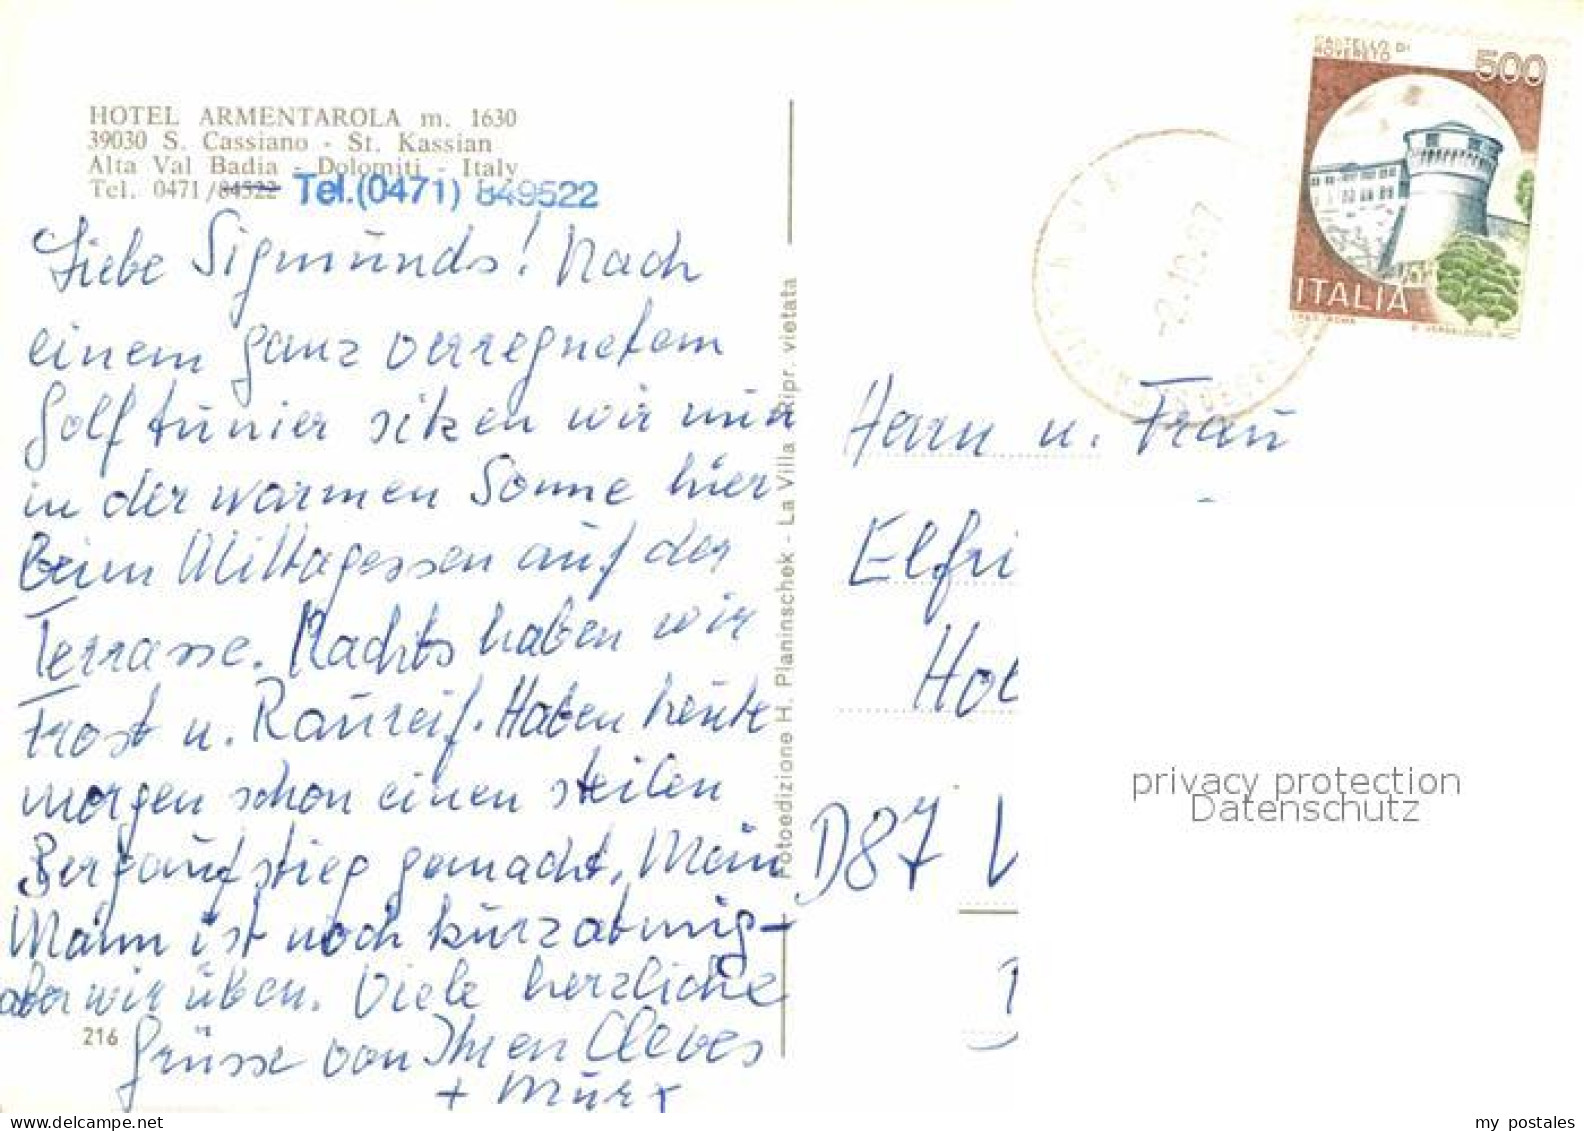 HOTEL ARMENTAROLA m. 1630
39030 S. Cassiano - St. Kassian
Alta Val Badia - Dolomiti - Italy
Tel. 0471/84522 Tel.(0471) 849522
Liebe Sigmunds! Nach
einem ganz verregnetem
Golfturnier sitzen wir nun
in der warmen Sonne hier
beim Mittagessen auf der
Terrasse. Nachts haben wir
Frost u. Raureif. Haben heute
morgen schon einen steilen
Bergaufstieg gemacht. Mein
Mann ist noch kurzatmig -
aber wir üben. Viele herzliche
Grüsse von Ihren Cleves
+ Murx
216
Fotoedizione H. Planinschek - La Villa - Ripr. vietata
CASTELLO DI
ROVERETO
500
ITALIA
-2.10.87
Herrn u. Frau
Elfri
Hol
D87
privacy protection
Datenschutz
my postales